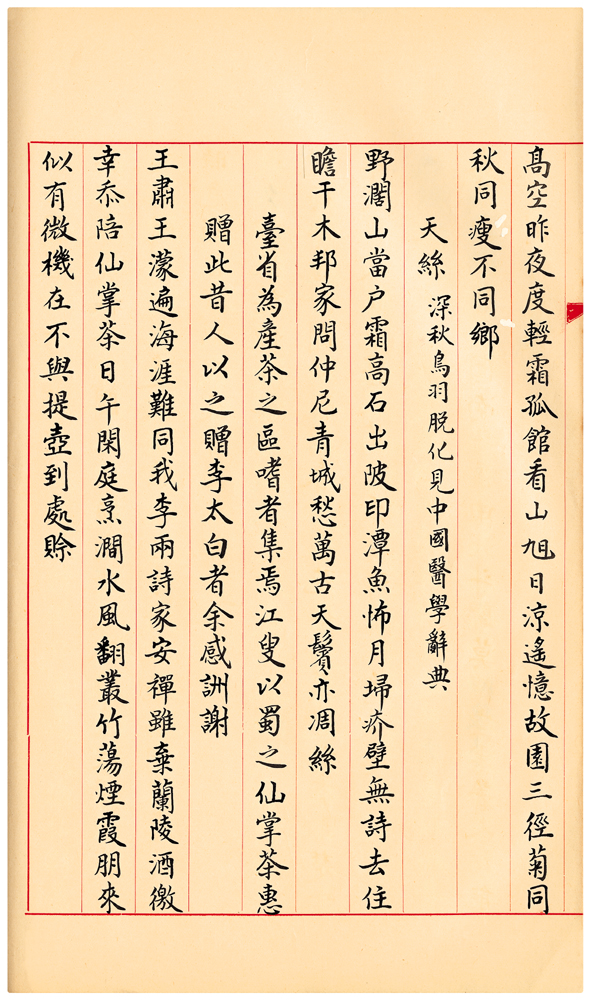 高空昨夜度輕霜孤館看山旭日涼遙憶故園三徑菊同
秋同瘦不同鄉
天絲 深秋鳥羽脫化見中國醫學辭典
野濶山當户霜高石出陂印潭魚怖月埽疥壁無詩去住
瞻干木邦家問仲尼青城愁萬古天鬢亦凋絲
臺省為產茶之區嗜者集焉江叟以蜀之仙掌茶惠
贈此昔人以之贈李太白者余感詶謝
王肅王濛遍海涯難同我李兩詩家安禪雖棄蘭陵酒徼
幸忝陪仙掌茶日午閑庭烹澗水風翻叢竹蕩煙霞朋來
似有微機在不與提壺到處賒